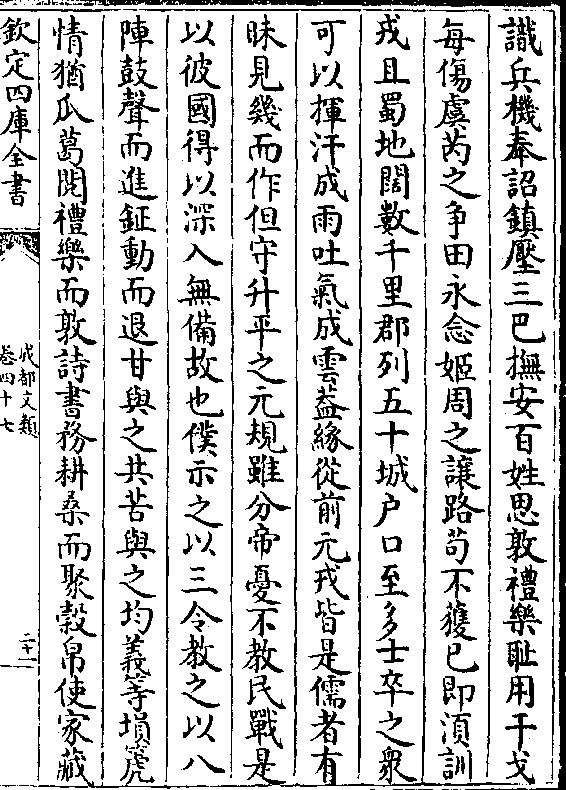 識兵機奉詔鎮壓三巴撫安百姓思敦禮樂耻用干戈
每傷虞芮之争田永念姬周之讓路茍不獲已即湏訓
戎且蜀地闊數千里郡列五十城户口至多士卒之衆
可以揮汗成雨吐氣成雲葢緣從前元戎皆是儒者有
昧見幾而作但守升平之元規雖分帝憂不教民戰是
以彼國得以深入無備故也僕示之以三令教之以八
陣鼓聲而進鉦動而退甘與之共苦與之均義等塤篪
情猶瓜葛閱禮樂而敦詩書務耕桑而聚穀帛使家藏
欽定四庫全書
成都文類
卷四十七
二十一